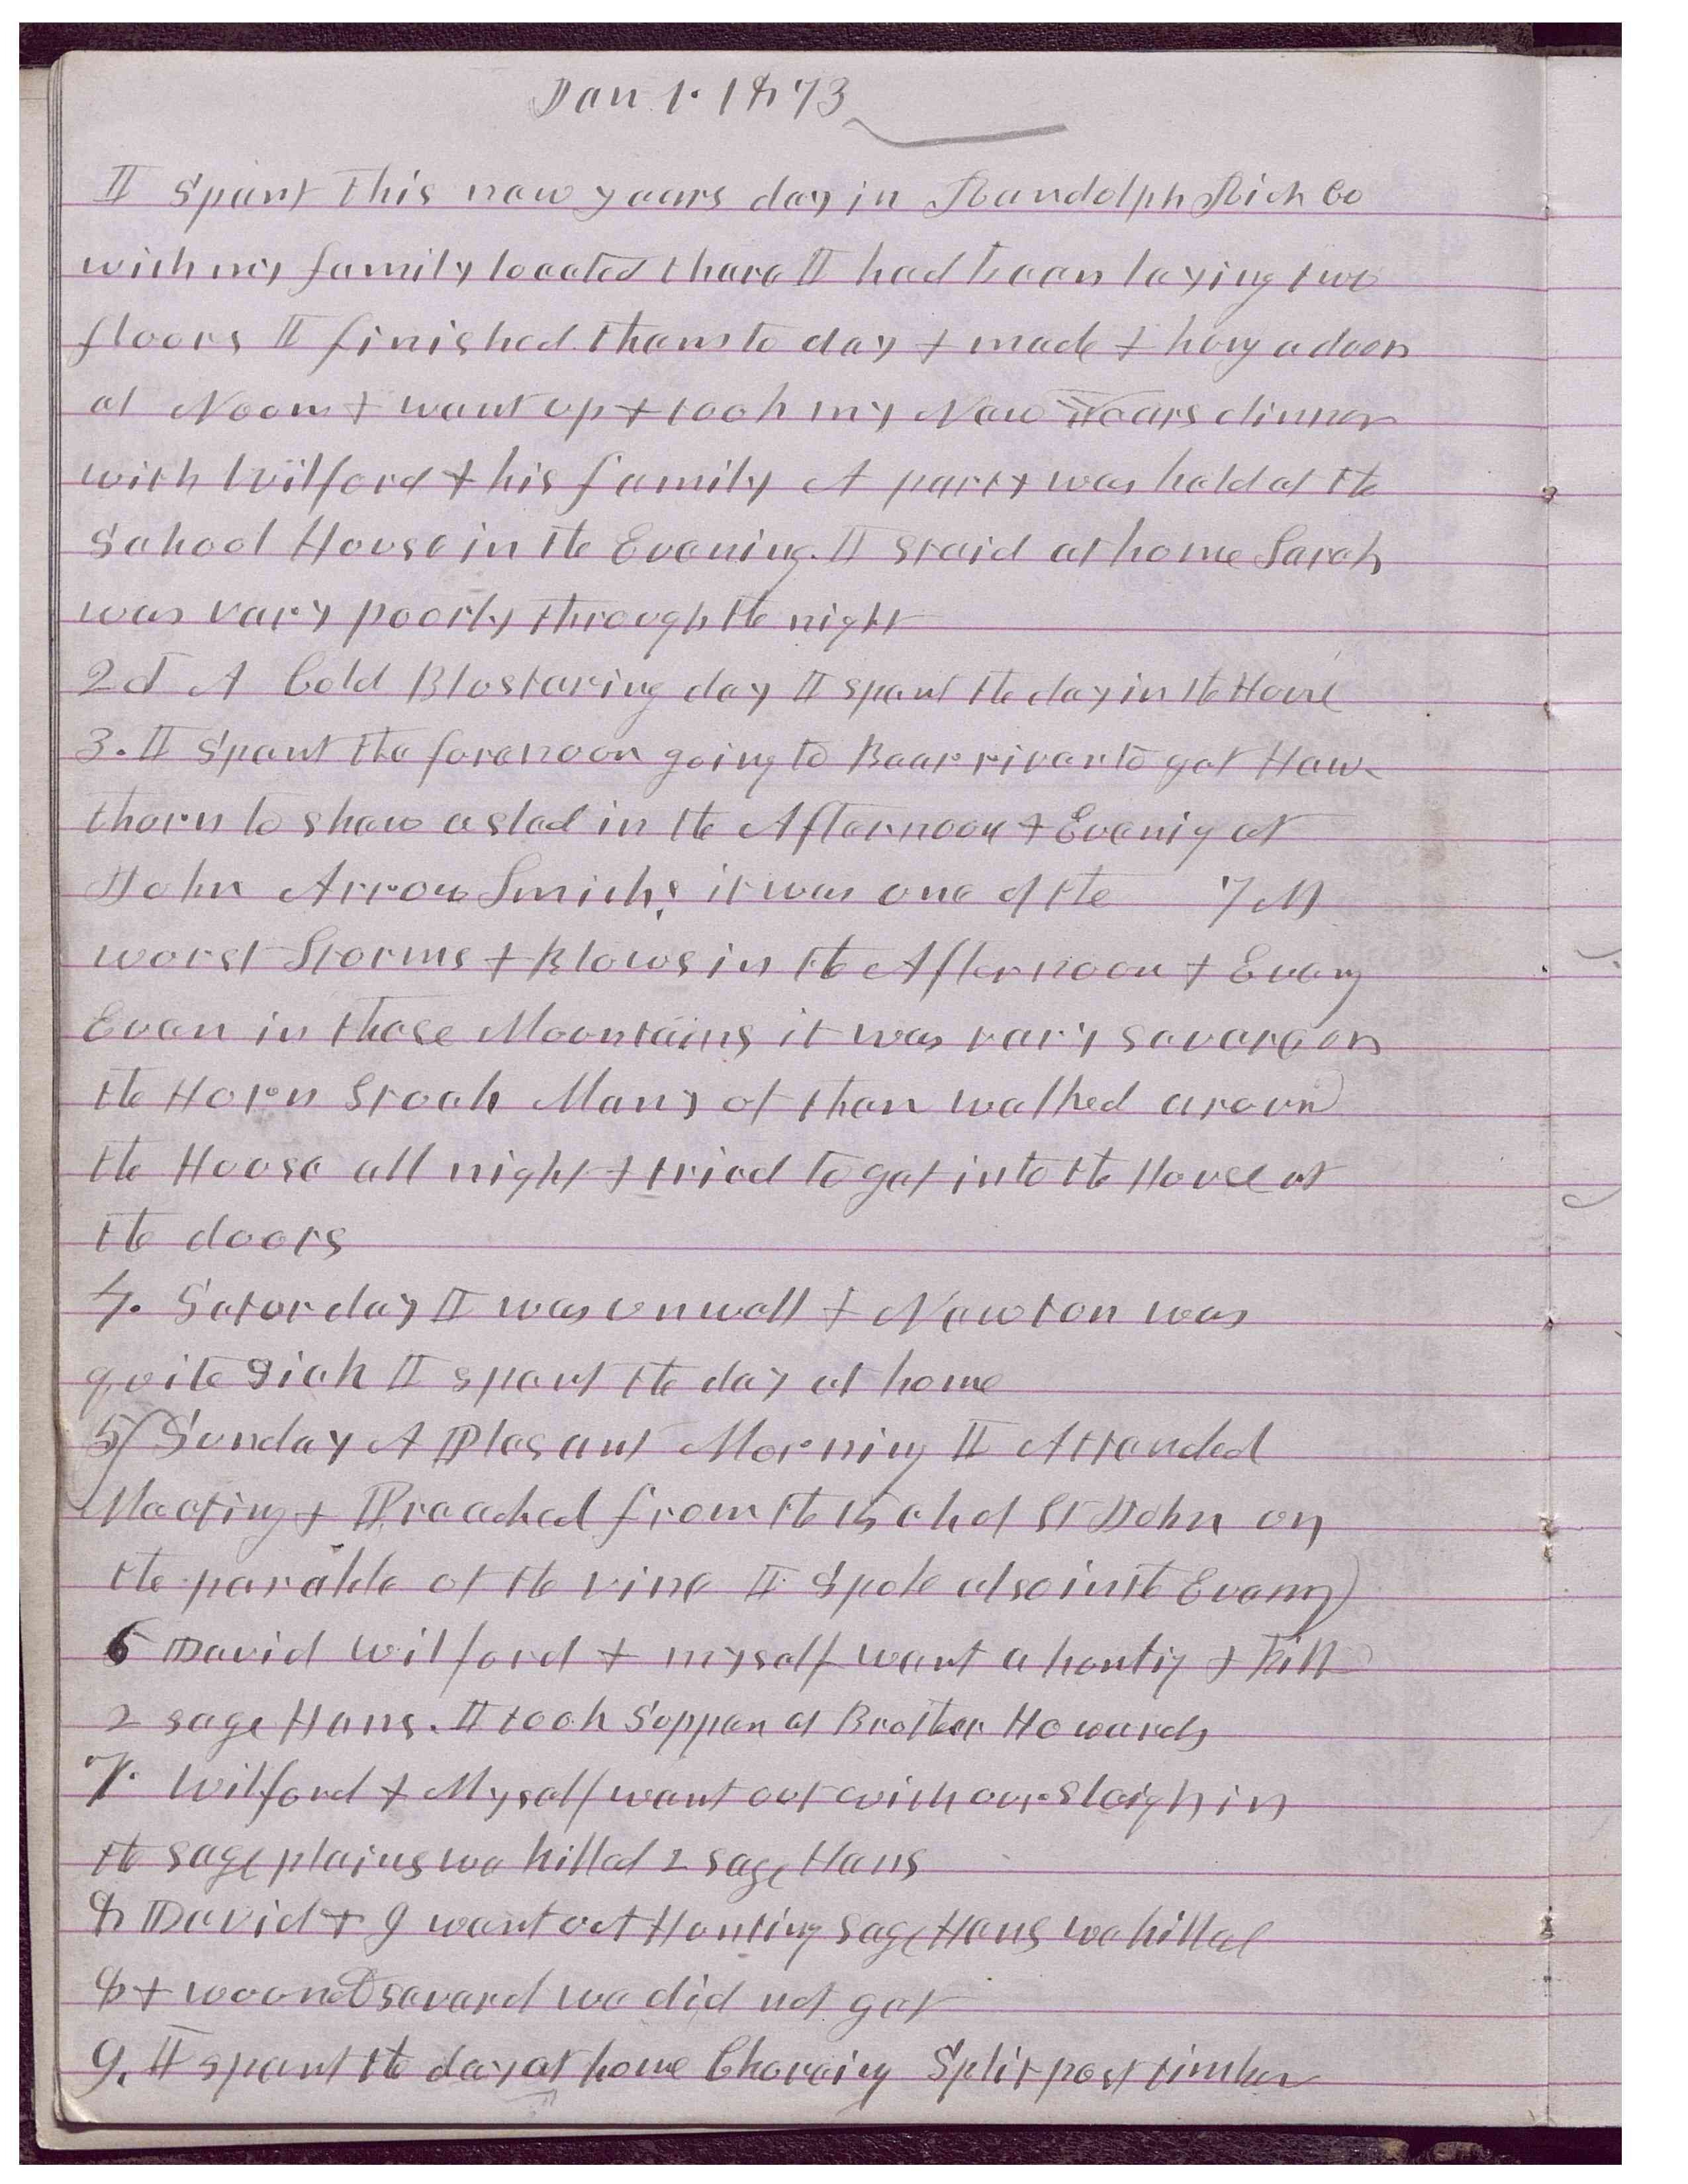 Jan 1. 1873
I Spent this new years day in Randolph Rich Co
with my family located there I had been laying two
floors I finished them to day & made & hung a door
at Noon & went up & took my New Years dinner
with Wilford & his family A party was held at the
School House in the Evening. I staid at home Sarah
was very poorly through the night
2d A Cold Blustering day I spent the day in the House
3. I Spent the forenoon going to Bear river to get Haw-
thorn to shew a sled in the Afternoon & Evenig at
John Arrow Smiths it was one of the 7 M
worst Storms & Blows in the Afternoon & Eveng
Even in those Mountains it was very severe on
the Horn Stock Many of them walked aroun
the House all night & tried to get into the House at
the doors
4. Saturday I was unwell & Newton was
quite sick I spent the day at home
5 Sunday A Plesant Morning I Attended
Meeting & Preached from the 15 ch of St John on
the parable of the vine I spoke also in the Eveng
6 David Wilford & myself went a huntig & kill
2 sage Hens. I took Supper at Brother Howards
7. Wilford & Myself went out with our sleigh in
the sage plains we killed 2 sage Hens
8 David & I went out Hunting sage Hens we killed
8 & wound severel we did not get
9. I spent the day at home Choreing Split post timber